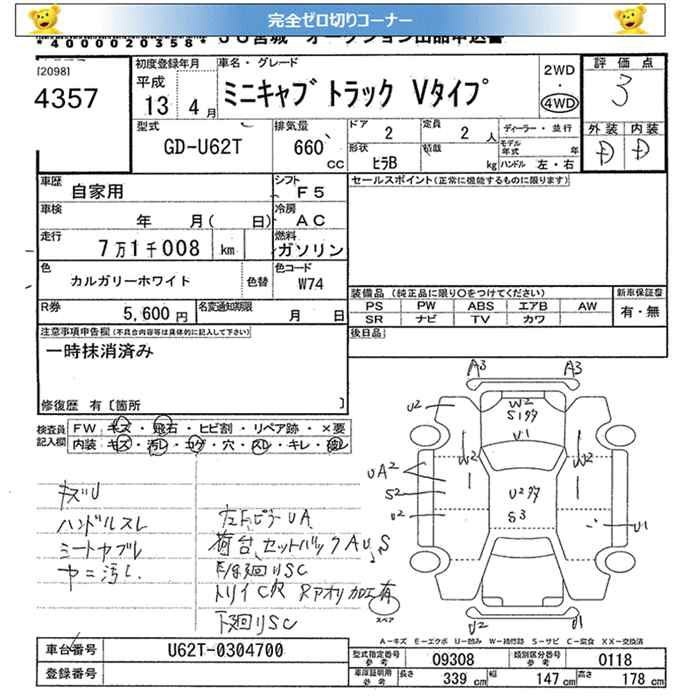 完全ゼロ切りコーナー
*4000020358* JU宮城 オークション出品申込書
[2098]
4357
初度登録年月
平成
13年 4月
車名・グレード
ミニキャブ トラック Vタイプ
2WD
・
4WD
評価点
3
型式
GD-U62T
排気量
660 CC
ドア
2
定員
2人
形状
ヒラB
積載
kg
ディーラー・並行
モデル年式 年
ハンドル 左・右
外装 内装
D D
車歴
自家用
シフト
F5
セールスポイント(正常に機能するものに限ります)
車検
年 月( 日)
冷房
AC
走行
7万1千008 km
燃料
ガソリン
色
カルガリーホワイト
色替
色コード
W74
装備品 (純正品に限り○をつけてください)
PS PW ABS エアB AW
SR ナビ TV カワ
新車保証書
有・無
R券
5,600円
名変通知期限
月 日
後日品
注意事項申告欄(不具合内容等は具体的に記入して下さい)
一時抹消済み
修復歴 有 [箇所 ]
検査員記入欄
FW キズ・飛石・ヒビ割・リペア跡・×要
内装 キズ・汚レ・コゲ・穴・スレ・キレ・
キズU
ハンドルスレ
シートヤブレ
ヤニ汚レ
左Fピラー UA
荷台、セットバックAU、S
下廻りSC
A3 A3
U2
W2
S1多
U1
W2 W2
UA2
S2
U2
U2多
S3
U1
U2 U1
スペア
A-キズ E-エクボ U-凹み W-補修跡 S-サビ C-腐食 XX-交換済
車台番号
U62T-0304700
登録番号
型式指定番号 参考
09308
類別区分番号 参考
0118
車庫証明用 参考
長さ 339 cm
幅 147 cm
高さ 178 cm